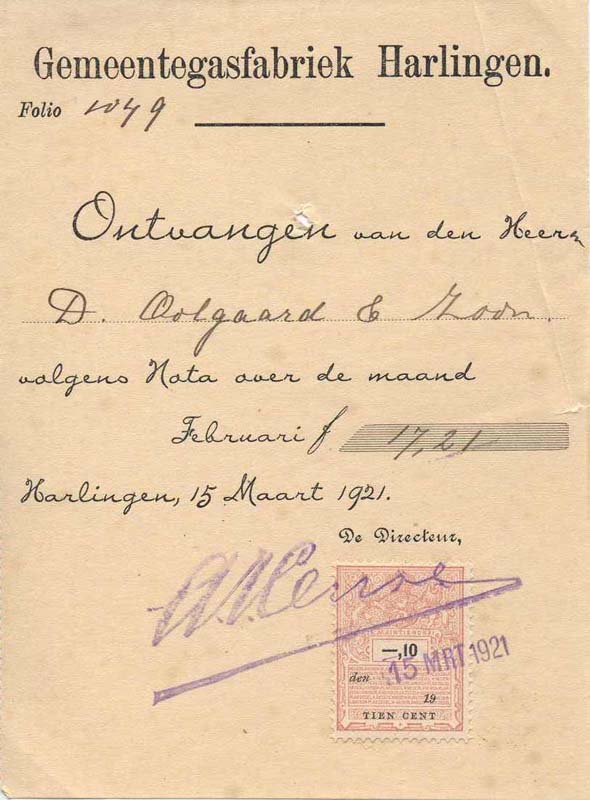 Gemeentegasfabriek Harlingen.
Folio 1049
Ontvangen van den Heer
D. Oolgaard & Zoon.
volgens Nota over de maand
Februari f 17,21
Harlingen, 15 Maart 1921.
De Directeur,
—,10
15 MRT 1921
den
19
TIEN CENT